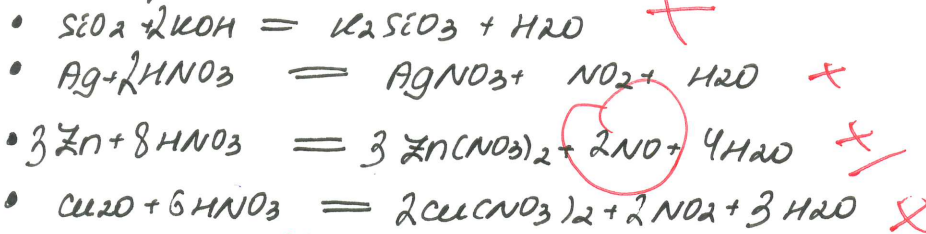 • SiO2 + 2KOH = K2SiO3 + H2O +
• Ag + 2HNO3 = AgNO3 + NO2 + H2O +
• 3 Zn + 8 HNO3 = 3 Zn(NO3)2 + 2NO + 4H2O ±
• Cu2O + 6 HNO3 = 2Cu(NO3)2 + 2NO2 + 3 H2O +